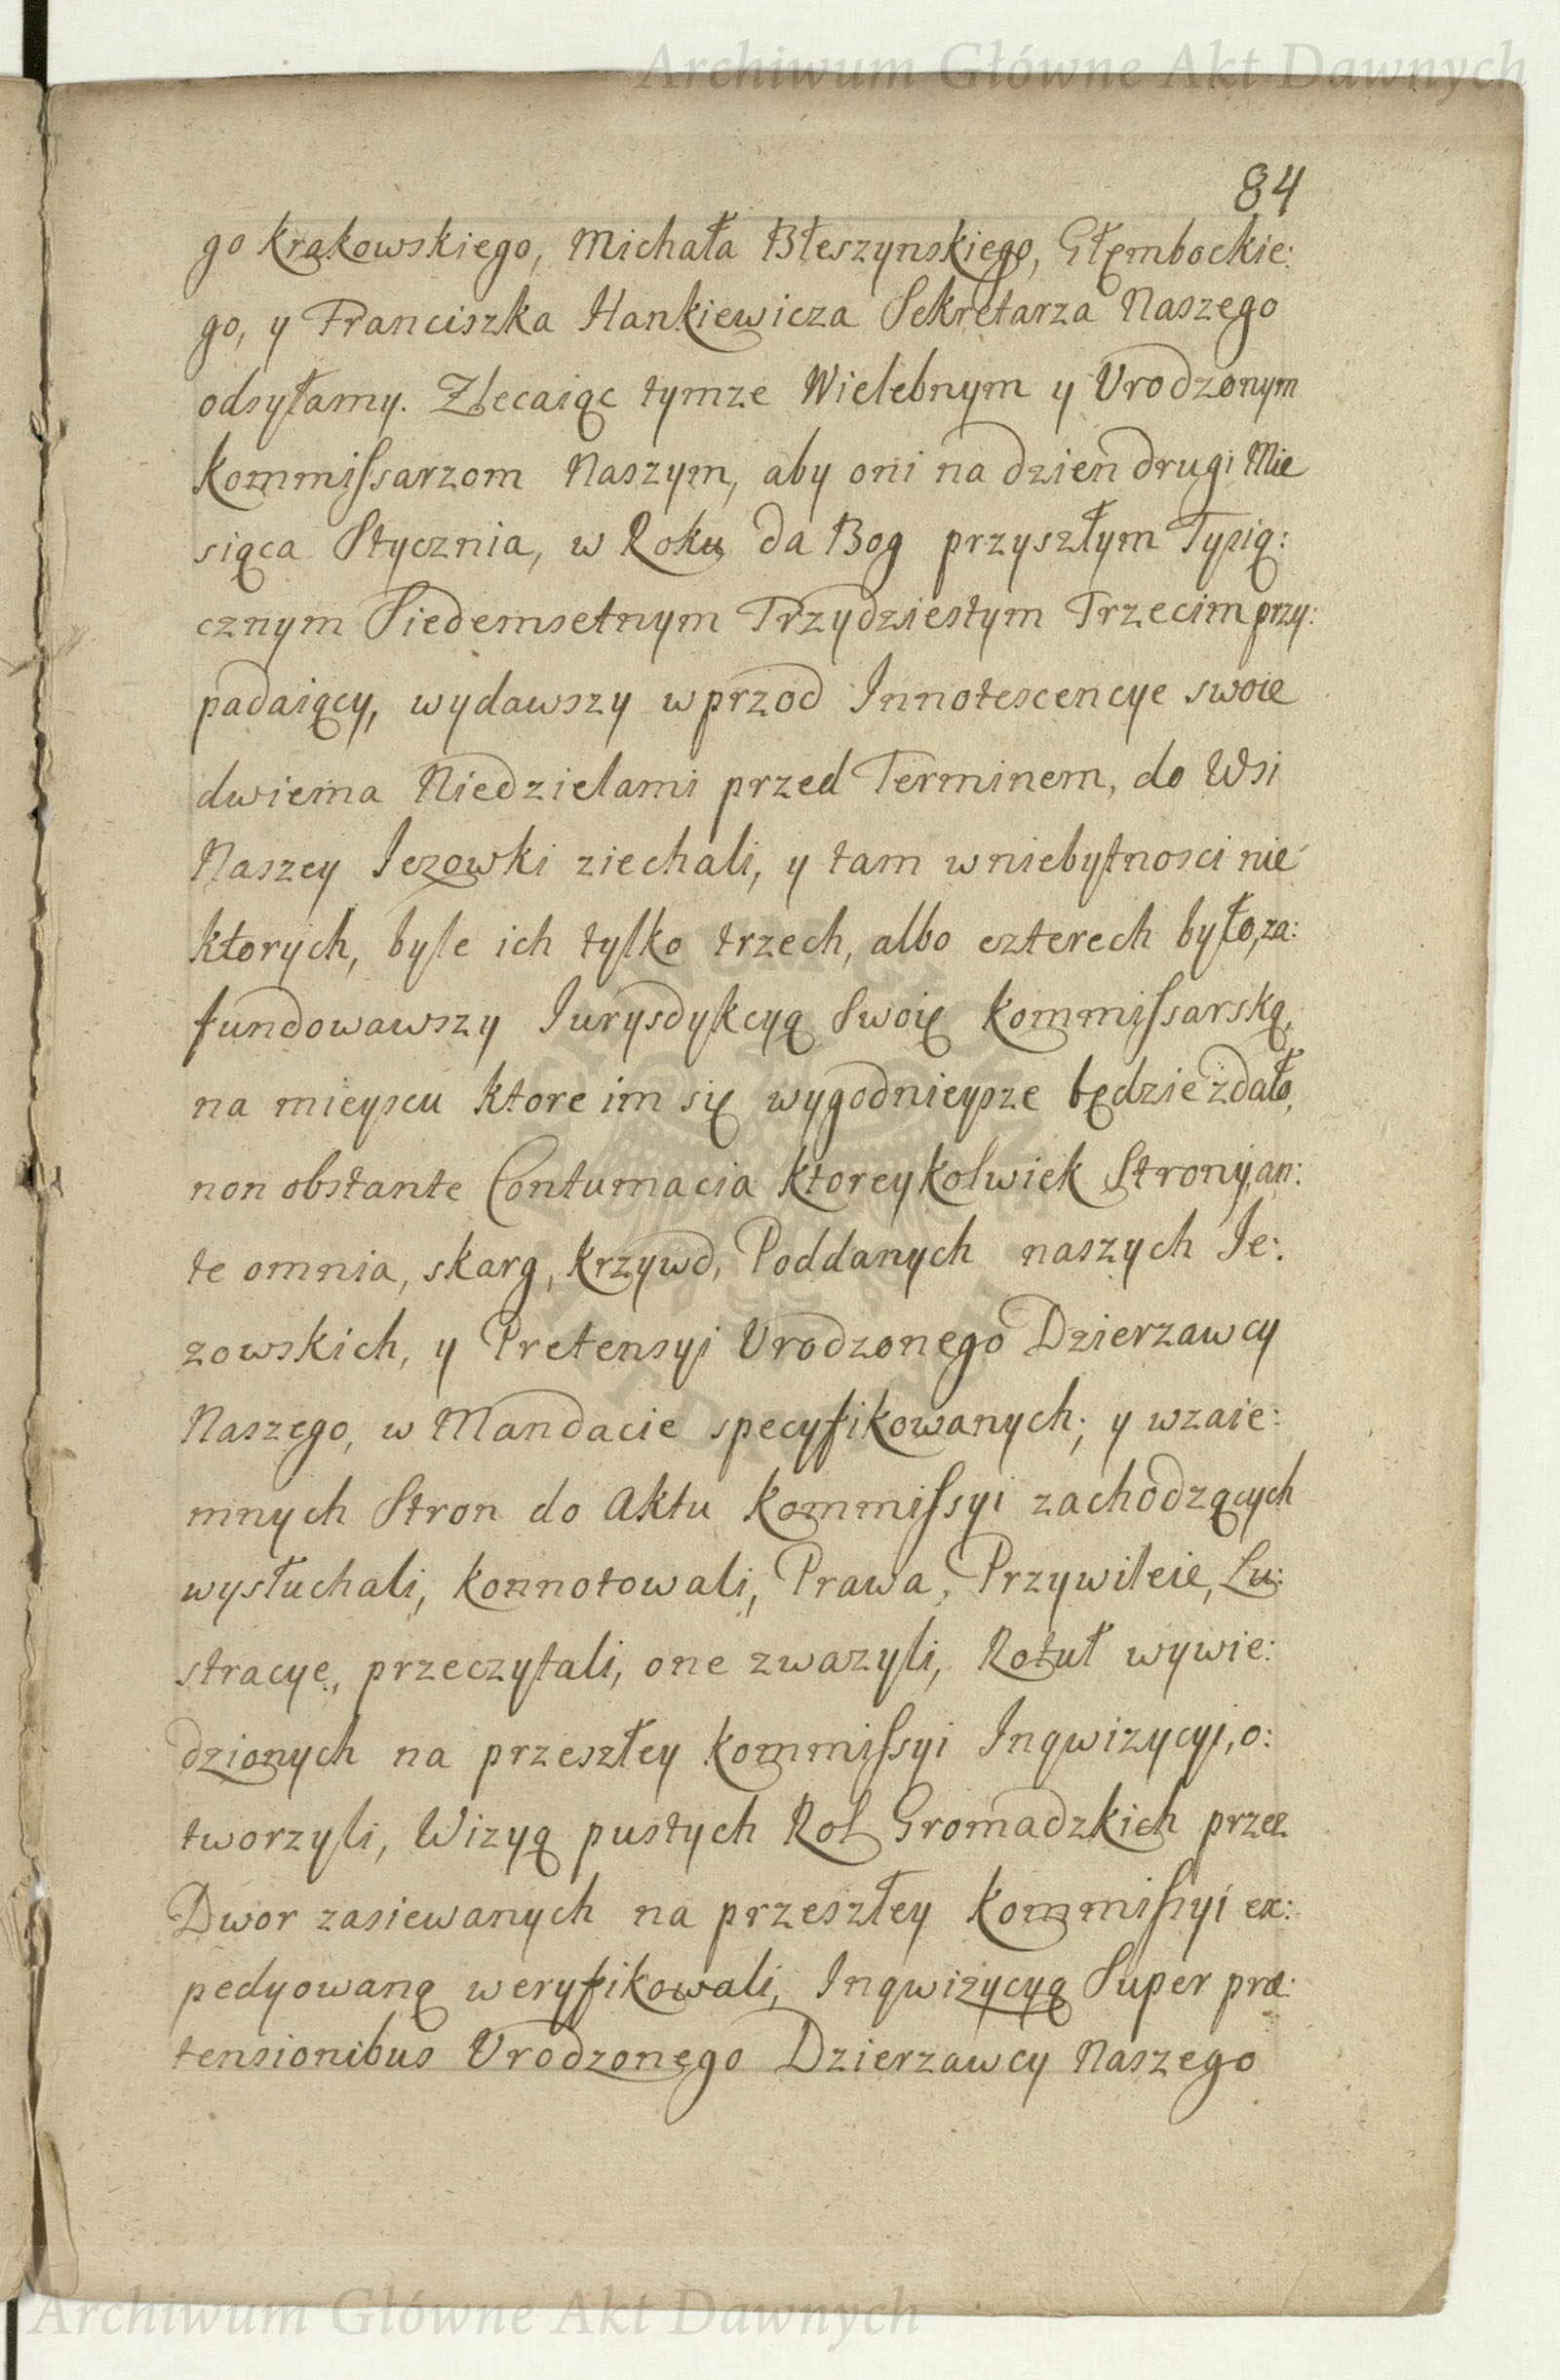 Archiwum Główne Akt Dawnych
84
go Krakowskiego, Michała Błeszynskiego, Głęmbockie:
go, y Franciszka Hankiewicza Sekretarza Naszego
odsyłamy. Zlecaiąc tymze Wielebnym y Urodzonym
Kommissarzom Naszym, aby oni na dzień drugi Mie
siąca Stycznia, w Roku da Bog przyszłym Tysią:
cznym Siedemsetnym Trzydziestym Trzecim przy:
padaiący, wydawszy wprzod Innotescencye swoie
dwiema Niedzielami przed Terminem, do Wsi
Naszey Iezowki ziechali, y tam w niebytnosci nie
ktorych, byle ich tylko trzech, albo czterech było, za:
fundowawszy Iurysdykcyą Swoię Kommissarską,
na mieyscu ktore im się wygodnieysze będzie zdało,
non obstante Contumacia ktoreykolwiek Strony, an:
te omnia, skarg, krzywd, Poddanych naszych Ie:
zowskich, y Pretensyi Urodzonego Dzierzawcy
Naszego, w Mandacie specyfikowanych; y wzaie:
mnych Stron do Aktu Kommissyi zachodzących
wysłuchali, konnotowali, Prawa, Przywileie, Lu:
stracye, przeczytali, one zwazyli, Rotuł wywie:
dzionych na przeszłey Kommissyi Inqwizycyi, o:
tworzyli, Wizyą pustych Rol Gromadzkich przez
Dwor zasiewanych na przeszłey Kommissyi ex:
pedyowaną weryfikowali, Inqwizycyą Super præ:
tensionibus Urodzonego Dzierzawcy Naszego
Archiwum Główne Akt Dawnych